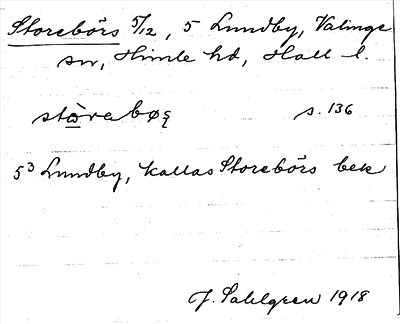 Storebörs 5/12, 5 Lundby, Valinge
sn, Himle hd, Hall l.
stòrebøş s. 136
5³ Lundby, kallas Storebörs bek
J. Sahlgren 1918